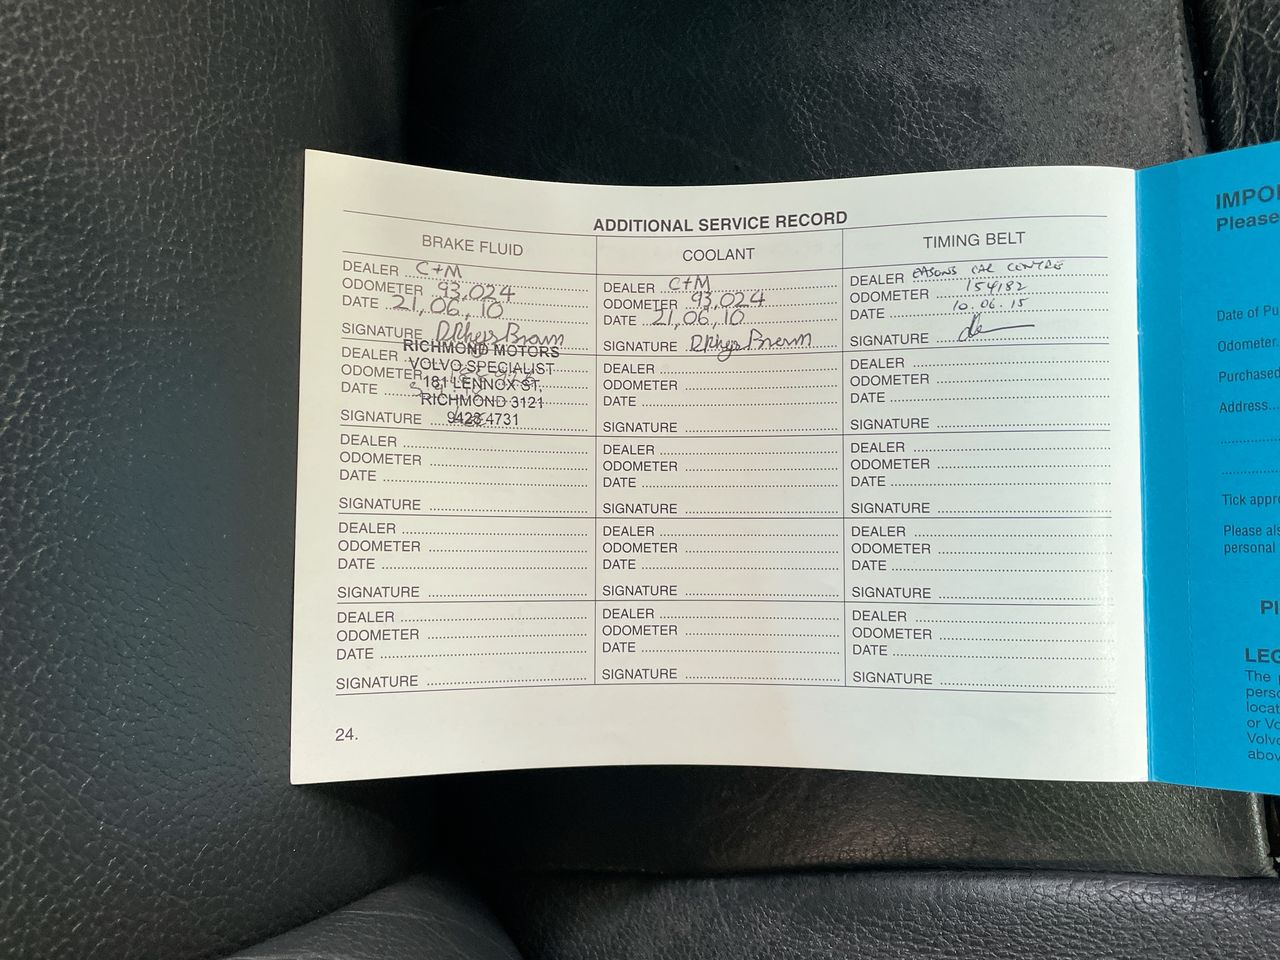 ADDITIONAL SERVICE RECORD
BRAKE FLUID
DEALER C+M
ODOMETER 93,024
DATE 21,06,10
SIGNATURE
DEALER
RICHMOND MOTORS
VOLVO SPECIALIST
ODOMETER
181 LENNOX ST.
DATE
RICHMOND 3121
SIGNATURE
9428 4731
DEALER
ODOMETER
DATE
SIGNATURE
DEALER
ODOMETER
DATE
SIGNATURE
DEALER
ODOMETER
DATE
SIGNATURE
COOLANT
DEALER C+M
ODOMETER 93,024
DATE 21,06,10
SIGNATURE
DEALER
ODOMETER
DATE
SIGNATURE
DEALER
ODOMETER
DATE
SIGNATURE
DEALER
ODOMETER
DATE
SIGNATURE
DEALER
ODOMETER
DATE
SIGNATURE
TIMING BELT
DEALER EASONS CAR CENTRE
ODOMETER 154182
DATE 10.06.15
SIGNATURE
DEALER
ODOMETER
DATE
SIGNATURE
DEALER
ODOMETER
DATE
SIGNATURE
DEALER
ODOMETER
DATE
SIGNATURE
DEALER
ODOMETER
DATE
SIGNATURE
24.
IMPO
Please
Date of Pu
Odometer
Purchased
Address
Tick appro
Please als
personal
Pl
LEG
The
perso
locat
or Vo
Volvo
abov